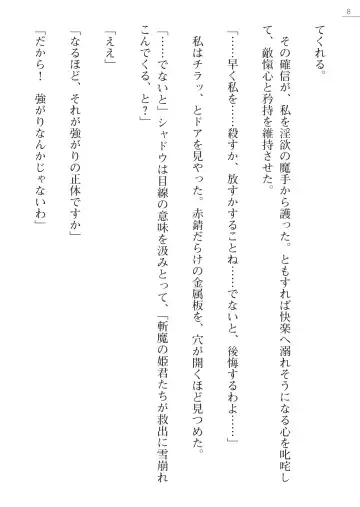 8
てくれる。
　その確信が、私を淫欲の魔手から護った。ともすれば快楽へ溺れそうになる心を叱咤し
て、敵愾心と矜持を維持させた。
「……早く私を……殺すか、放すかすることね……でないと、後悔するわよ……」
　私はチラッ、とドアを見やった。赤錆だらけの金属板を、穴が開くほど見つめた。
「……でないと」シャドウは目線の意味を汲みとって、「斬魔の姫君たちが救出に雪崩れ
こんでくる、と？」
「ええ」
「なるほど、それが強がりの正体ですか」
「だから！　強がりなんかじゃないわ」